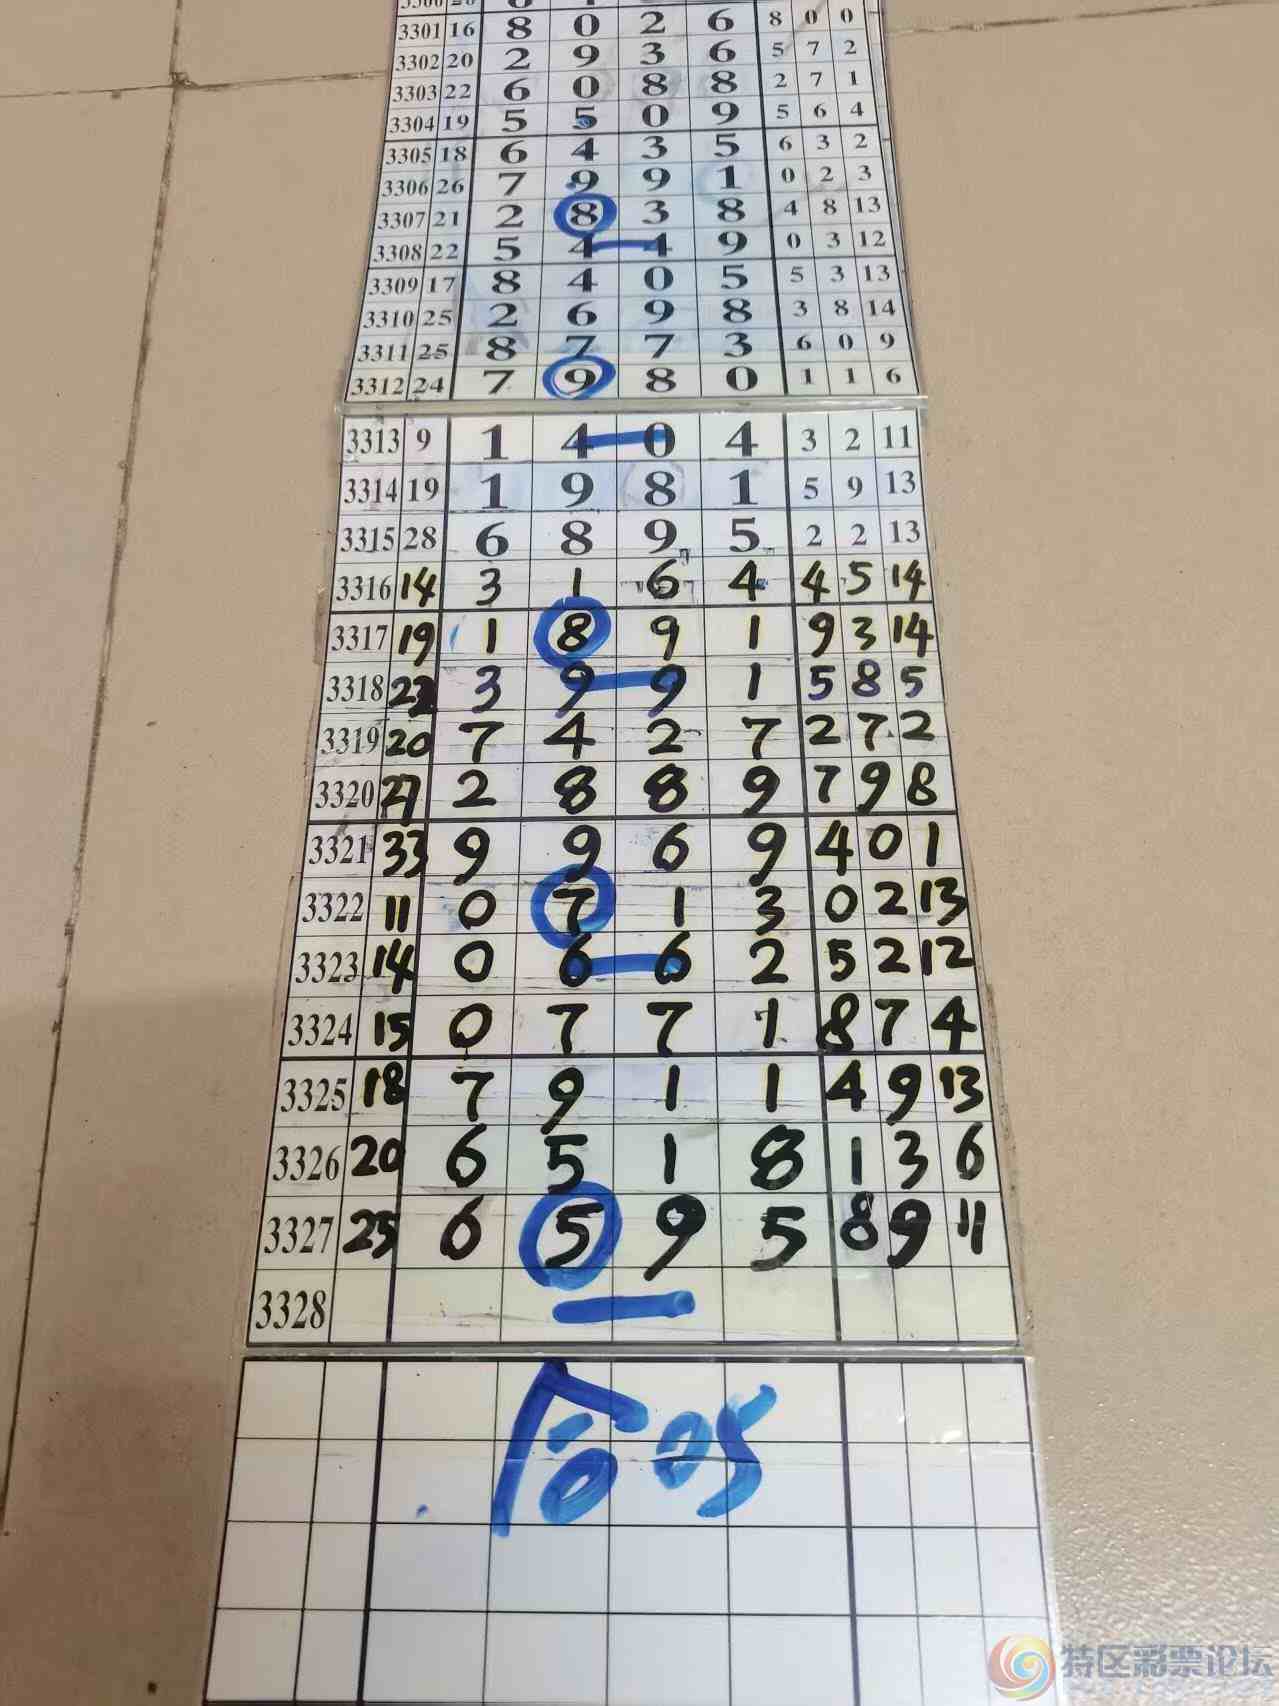 3301 16 8 0 2 6 8 0 0
3302 20 2 9 3 6 5 7 2
3303 22 6 0 8 8 2 7 1
3304 19 5 5 0 9 5 6 4
3305 18 6 4 3 5 6 3 2
3306 26 7 9 9 1 0 2 3
3307 21 2 8 3 8 4 8 13
3308 22 5 4 4 9 0 3 12
3309 17 8 4 0 5 5 3 13
3310 25 2 6 9 8 3 8 14
3311 25 8 7 7 3 6 0 9
3312 24 7 9 8 0 1 1 6
3313 9 1 4 0 4 3 2 11
3314 19 1 9 8 1 5 9 13
3315 28 6 8 9 5 2 2 13
3316 14 3 1 6 4 4 5 14
3317 19 1 8 9 1 9 3 14
3318 22 3 9 9 1 5 8 5
3319 20 7 4 2 7 2 7 2
3320 27 2 8 8 9 7 9 8
3321 33 9 9 6 9 4 0 1
3322 11 0 7 1 3 0 2 13
3323 14 0 6 6 2 5 2 12
3324 15 0 7 7 1 8 7 4
3325 18 7 9 1 1 4 9 13
3326 20 6 5 1 8 1 3 6
3327 25 6 5 9 5 8 9 11
3328
合05
特区彩票论坛